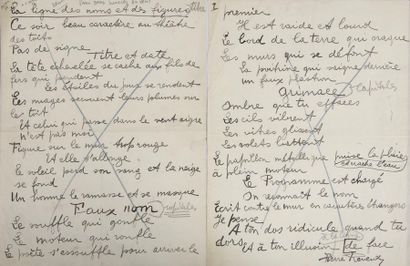 Le signe des noms et des figures
Ce soir beau caractère au théâtre
des toits
Pas de signe
Titre et date
La tête échaelée se cache des fils de
fers qui pendent
Les étoiles du jeu se rendent
Les nuages secouent leurs plumes sur
le toit
Et celui qui passe dans le vent signe
N'est pas moi
Figure sur le mur trop rouge
Et elle s'allonge
Le soleil perd son sang et la neige
se fond
Un homme le ramasse et se masque
Faux nom
capitales
Le souffle qui gonfle
Le moteur qui ronfle
Le poète s'essouffle pour arriver le
2
premier
Il est raide et lourd
Le bord de la terre qui craque
Les murs qui se défont
La poitrine qui saigne derrière
un faux plastron
Grimace
capitales
Ombre que tu effaces
Les cils vibrent
Les vitres glissent
Les volets
Le papillon métallique puise la pluie
à plein moteur
Le Programme est chargé
On saurait le nom
Écrit contre le mur en caractères étrangers
Je pense
A ton dos ridicule quand tu
dors
Et à ton illusion de face
Pierre Reverdy